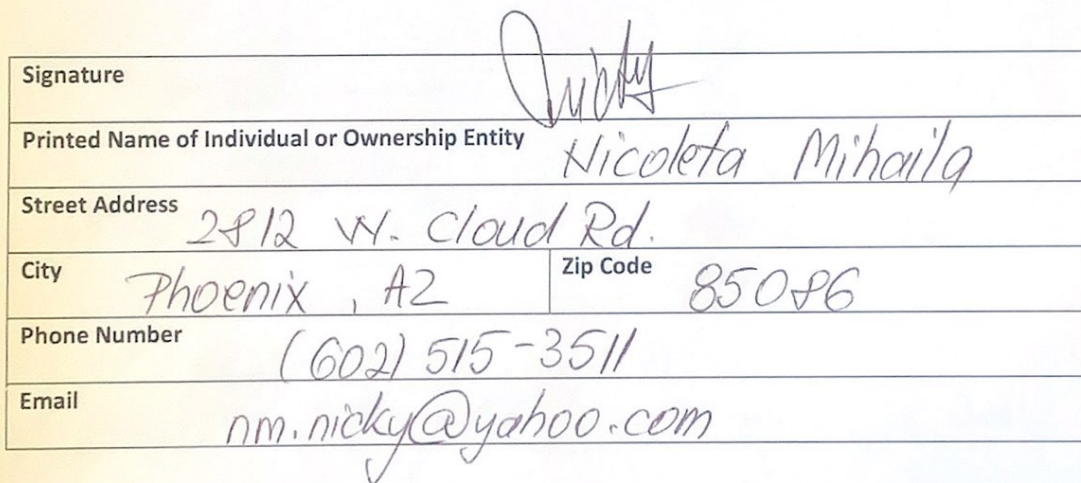 Signature
Printed Name of Individual or Ownership Entity Nicoleta Mihaila
Street Address 2812 W. Cloud Rd.
City Phoenix, AZ Zip Code 85086
Phone Number (602) 515-3511
Email nm.nicky@yahoo.com